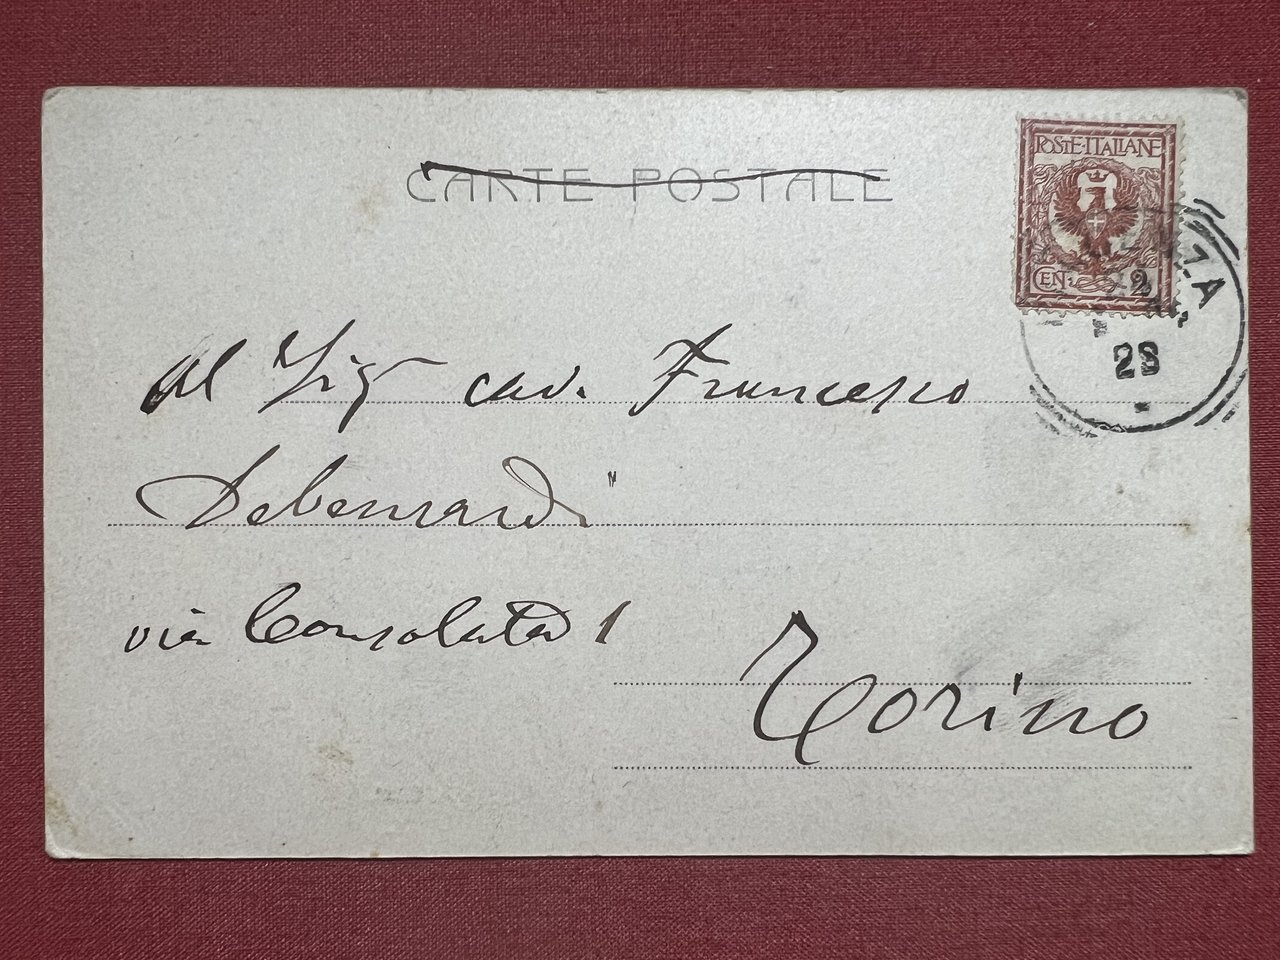 CARTE POSTALE
POSTE·ITALIANE
CENT. 2
ZZA
28
Al Sig cav. Francesco
Debernardi
via Consolata 1
Torino